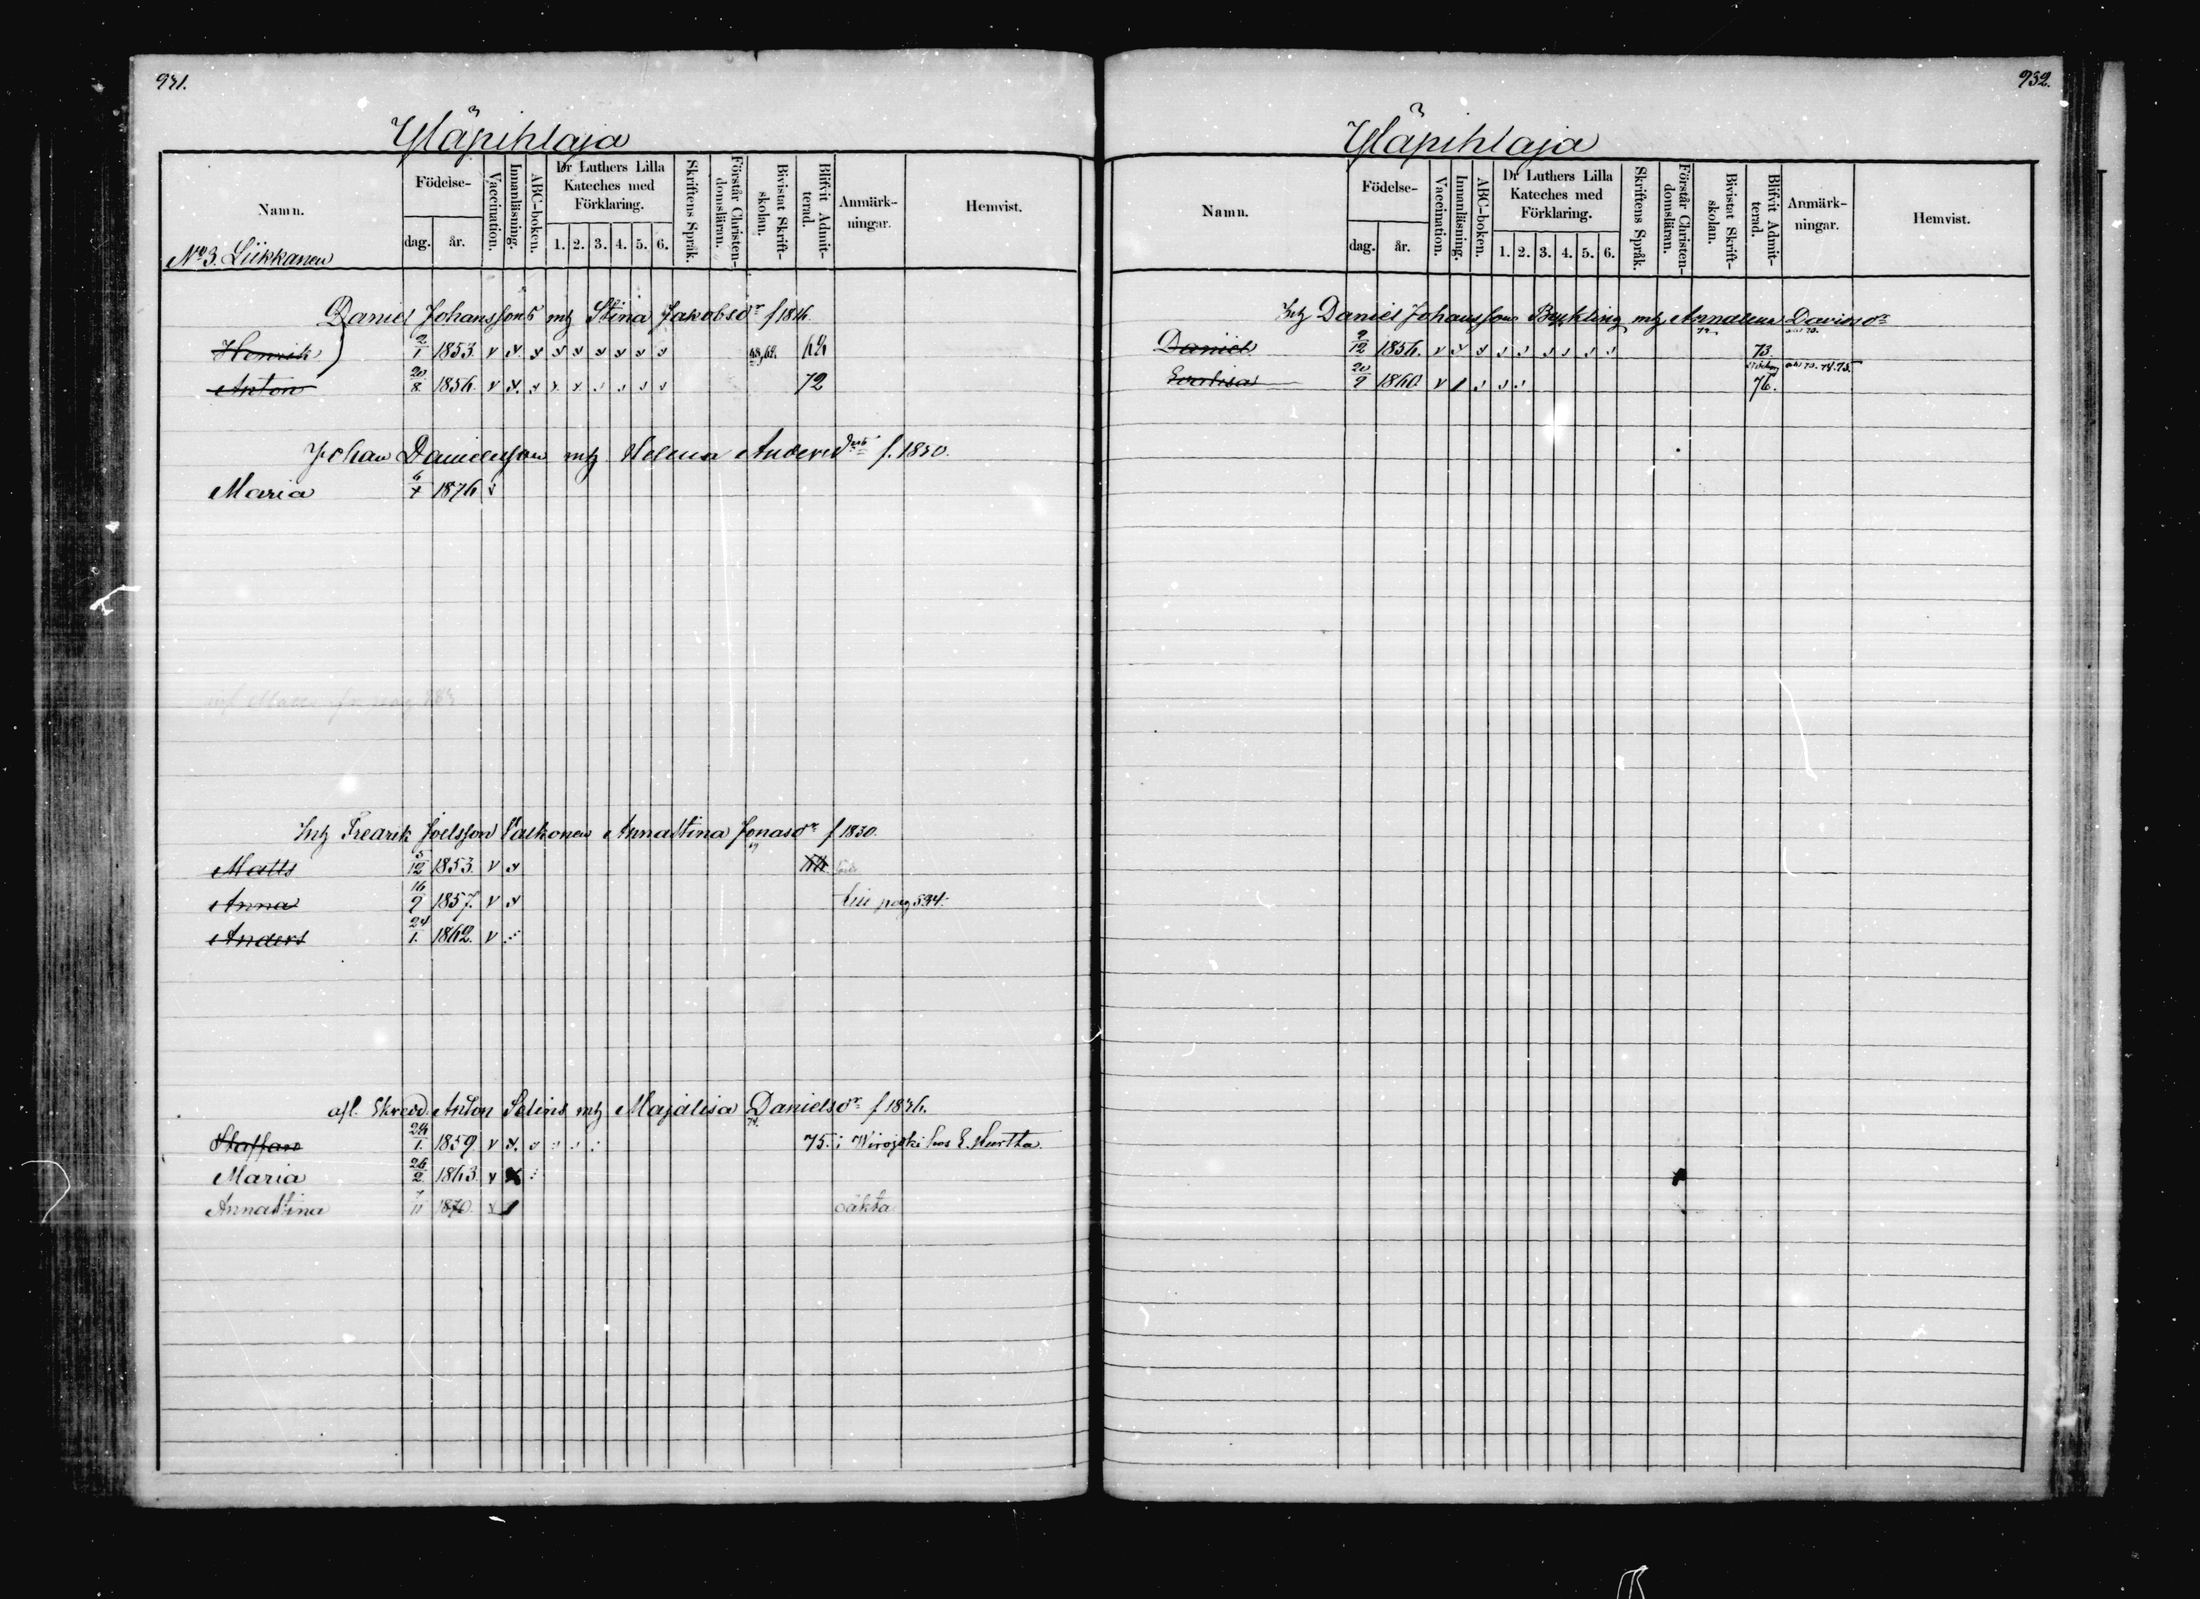 931.
Yläpihlaja
Namn. Födelse- dag. år. Vaccination. Innanläsning. ABC-boken. Dr Luthers Lilla Kateches med Förklaring. 1. 2. 3. 4. 5. 6. Skriftens Språk. Förstår Christendomsläran. Bivistat Skriftskolan. Blifvit Admitterad. Anmärkningar. Hemvist.
No 3. Liikkanen
Daniel Johanssons mtz Stina Jakobsdr f 1816
Henrik 2/1 1853. v v v v v v v v v
Anton 20/8 1856 v v v v v v v v v 72
Johan Danielsson mtz Helena Andersdotr f. 1830.
Maria 6/4 1876 v
Inh Fredrik Joelsson Annastina Jonasdr f 1830.
Matts 5/12 1853. v v
Anna 16/9 1857. v v
Anders 24/1. 1862. v
afl. Skredd. Anton Selins mtz Majalisa Danielsdr f 1836.
Staffan 24/1. 1859 v v. 75. i Wirojoki hos E. Hurtta.
Maria 26/2 1863. v
Annastina 7/11 1870. v oäkta
932.
Yläpihlaja
Namn. Födelse- dag. år. Vaccination. Innanläsning. ABC-boken. Dr Luthers Lilla Kateches med Förklaring. 1. 2. 3. 4. 5. 6. Skriftens Språk. Förstår Christendomsläran. Bivistat Skriftskolan. Blifvit Admitterad. Anmärkningar. Hemvist.
Inh Daniel Johansson mtz Annalena Davidsdr
Daniel 9/12 1856. v v v v v v v v v 73.
Evalisa 20/9 1860. v 76.